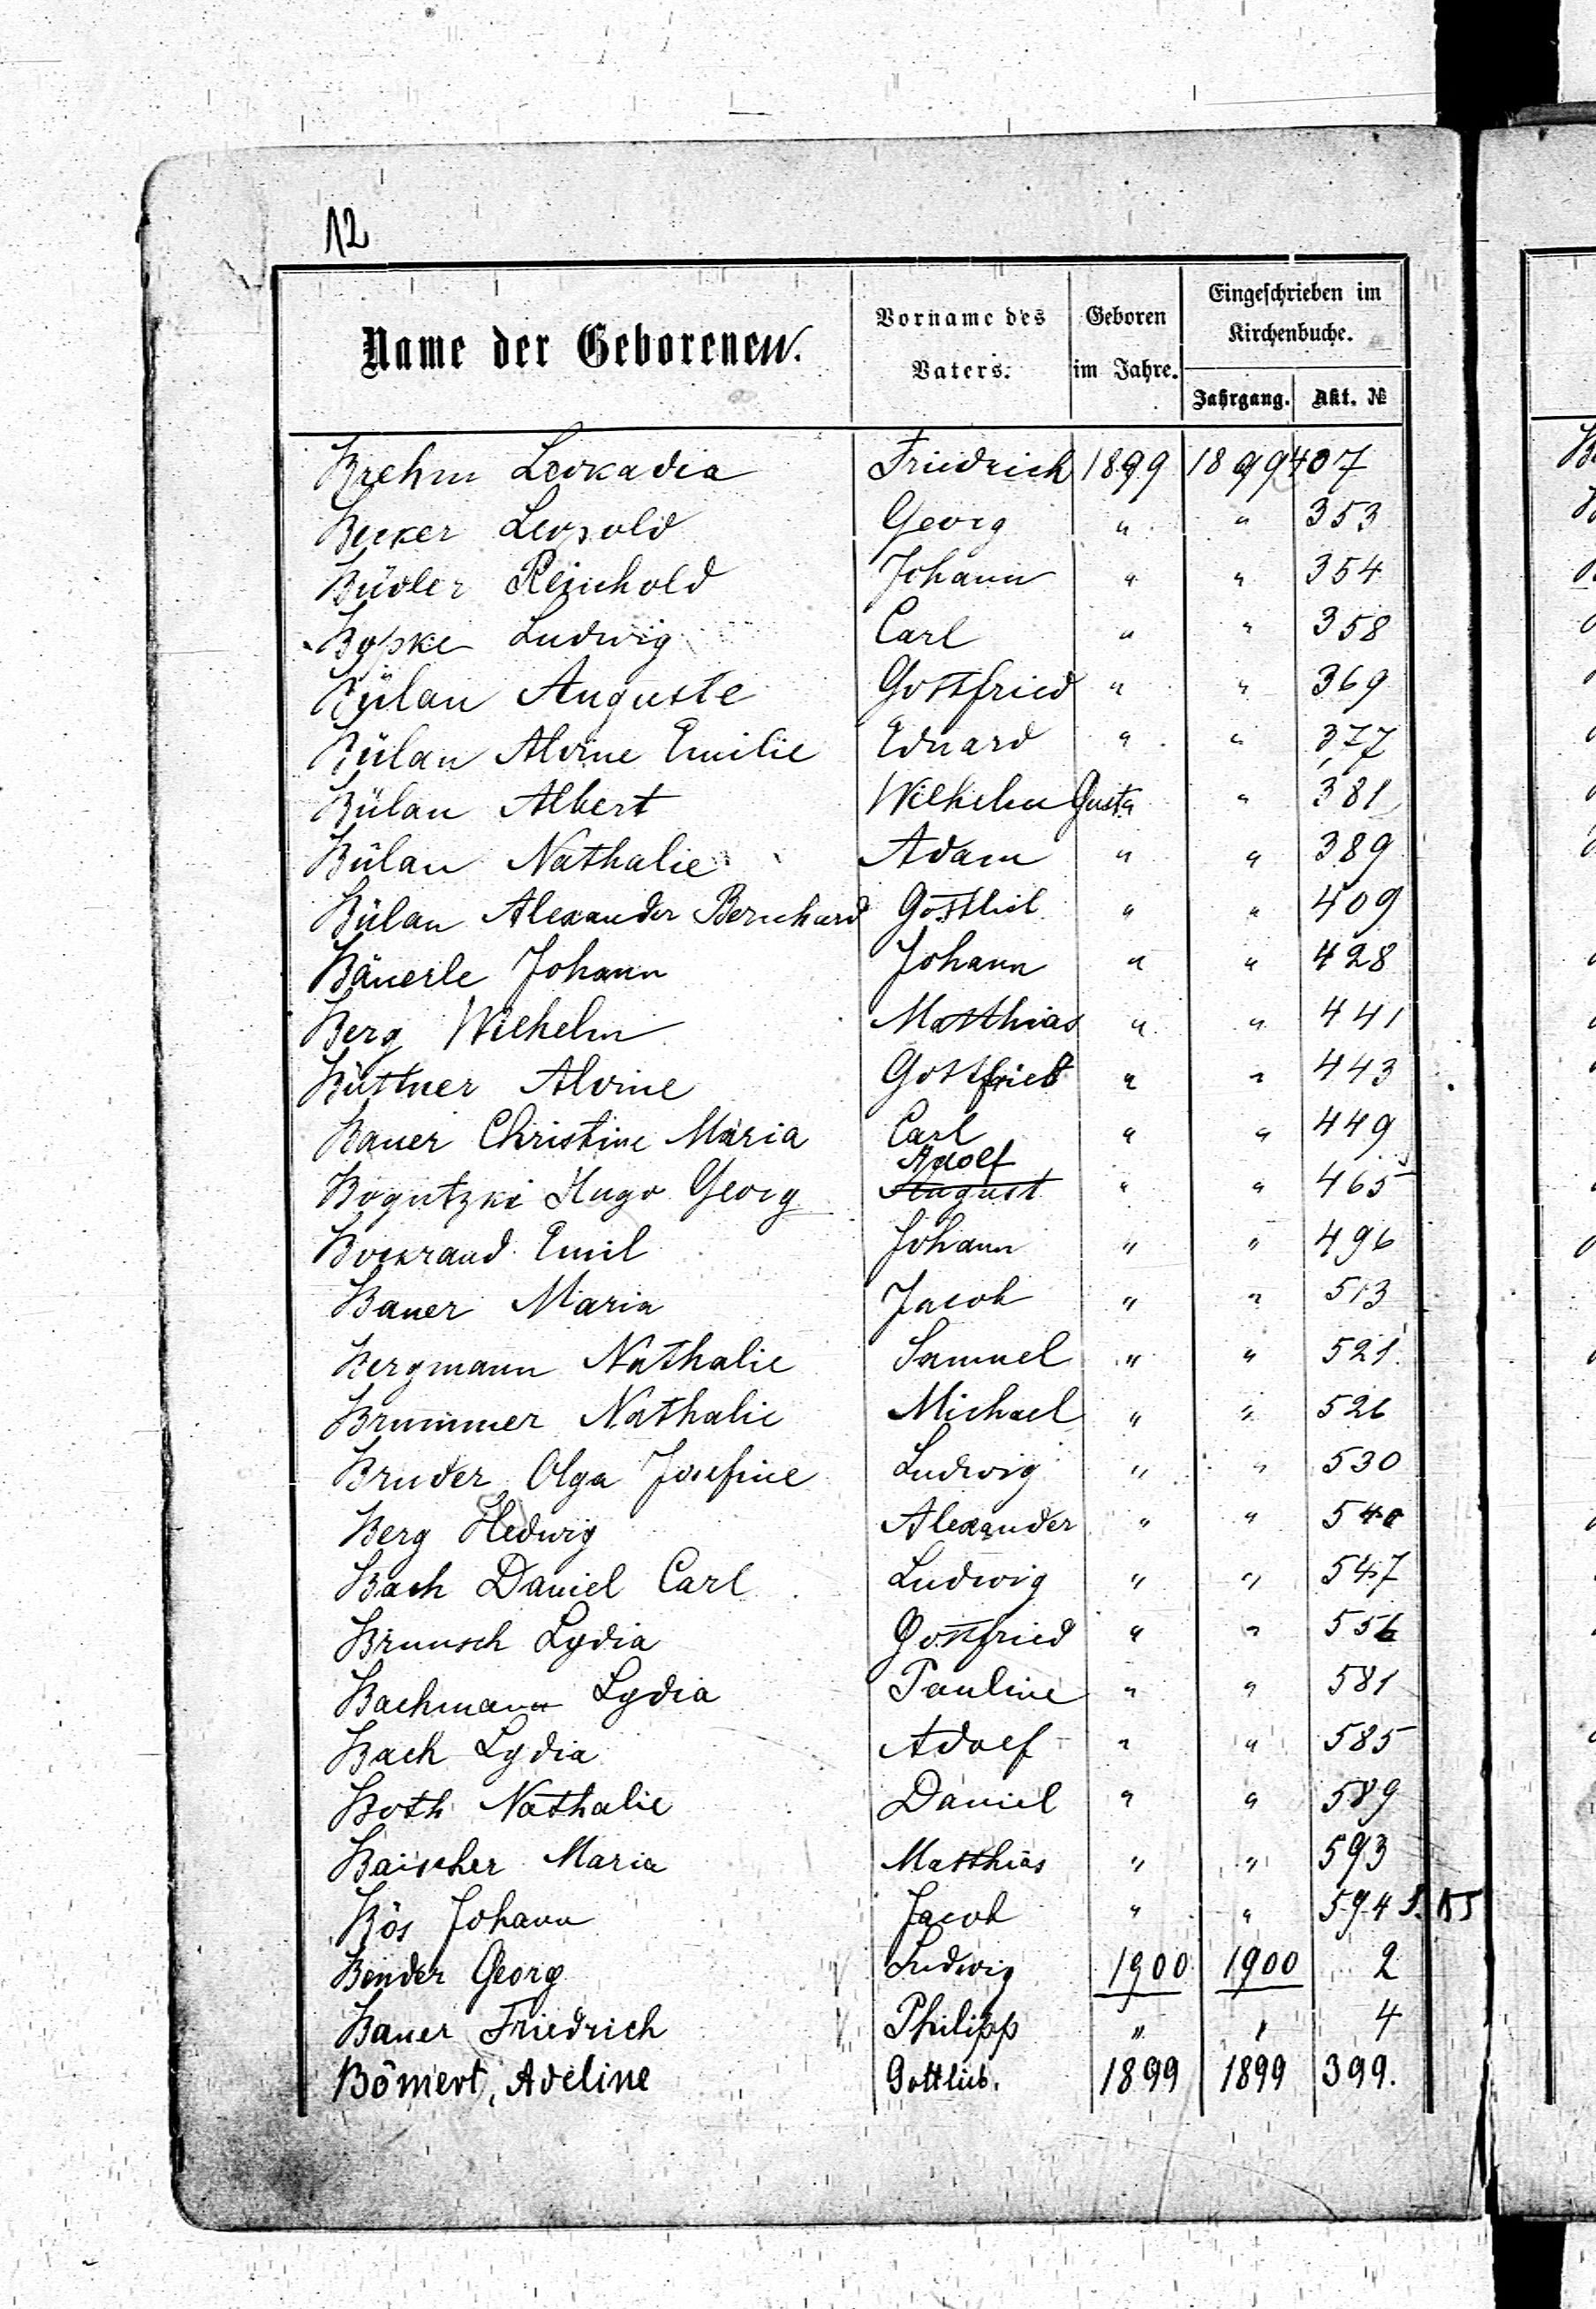 12
Name der Geborenen. Vorname des Vaters. Geboren im Jahre. Eingeschrieben im Kirchenbuche.
Jahrgang. Akt. №
Brehm Leokadia Friedrich 1899 1899 407
Becker Leopold Georg " " 353
Büdler Reinhold Johann " " 354
Bypke Ludwig Carl " " 358
Bülau Auguste Gottfried " " 369
Bülau Alvine Emilie Eduard " " 377
Bülau Albert Wilhelm Gust. " " 381
Bülau Nathalie Adam " " 389
Bülau Alexander Bernhard Gottlieb " " 409
Bäuerle Johann Johann " " 428
Berg Wilhelm Matthias " " 441
Büttner Alvine Gottfried " " 443
Bauer Christine Maria Carl " " 449
Adolf
Bogutzki Hugo Georg August " " 465
Bockrand Emil Johann " " 496
Bauer Maria Jacob " " 513
Bergmann Nathalie Samuel " " 521
Brummer Nathalie Michael " " 526
Bruder Olga Josefine Ludwig " " 530
Berg Hedwig Alexander " " 540
Bach Daniel Carl Ludwig " " 547
Brunsch Lydia Gottfried " " 556
Bachmann Lydia Pauline " " 581
Bach Lydia Adolf " " 585
Both Nathalie Daniel " " 589
Baischer Maria Matthias " " 593
Bös Johann Jacob " " 594
Bender Georg Ludwig 1900 1900 2
Bauer Friedrich Philipp " " 4
Bömert, Adeline Gottlieb. 1899 1899 399.